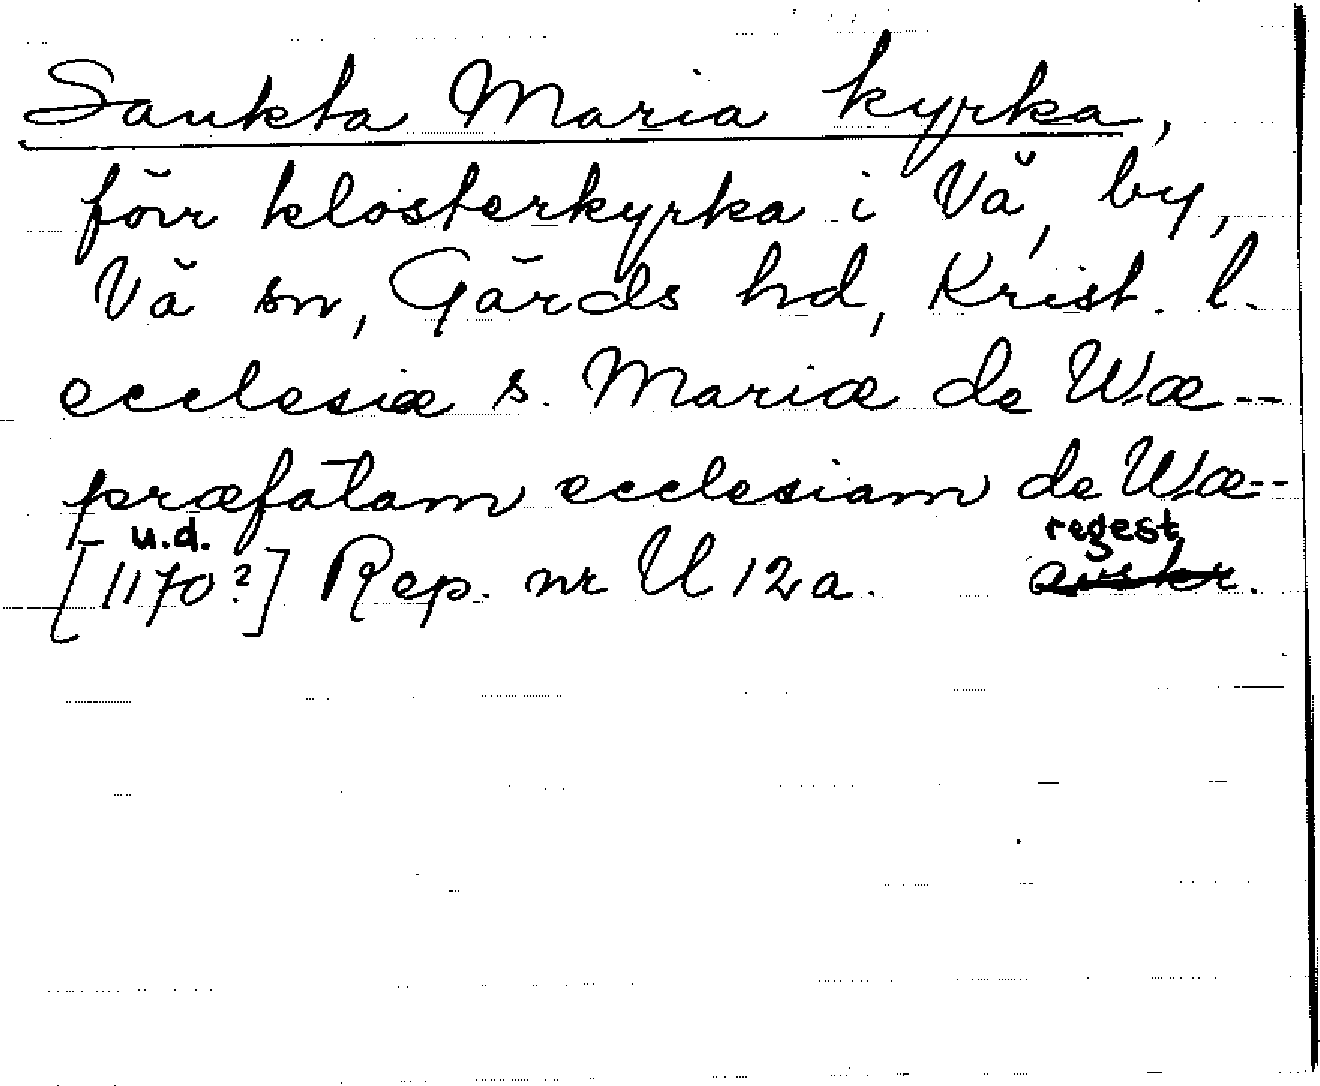 Sankta Maria kyrka,
förr klosterkyrka i Vä, by,
Vä sn, Gärds hd, Krist. l.
ecclesiæ s. Mariæ de Wæ --
præfatam ecclesiam de Wæ --
u.d. regest
[1170?] Rep. nr U 12a. avskr.